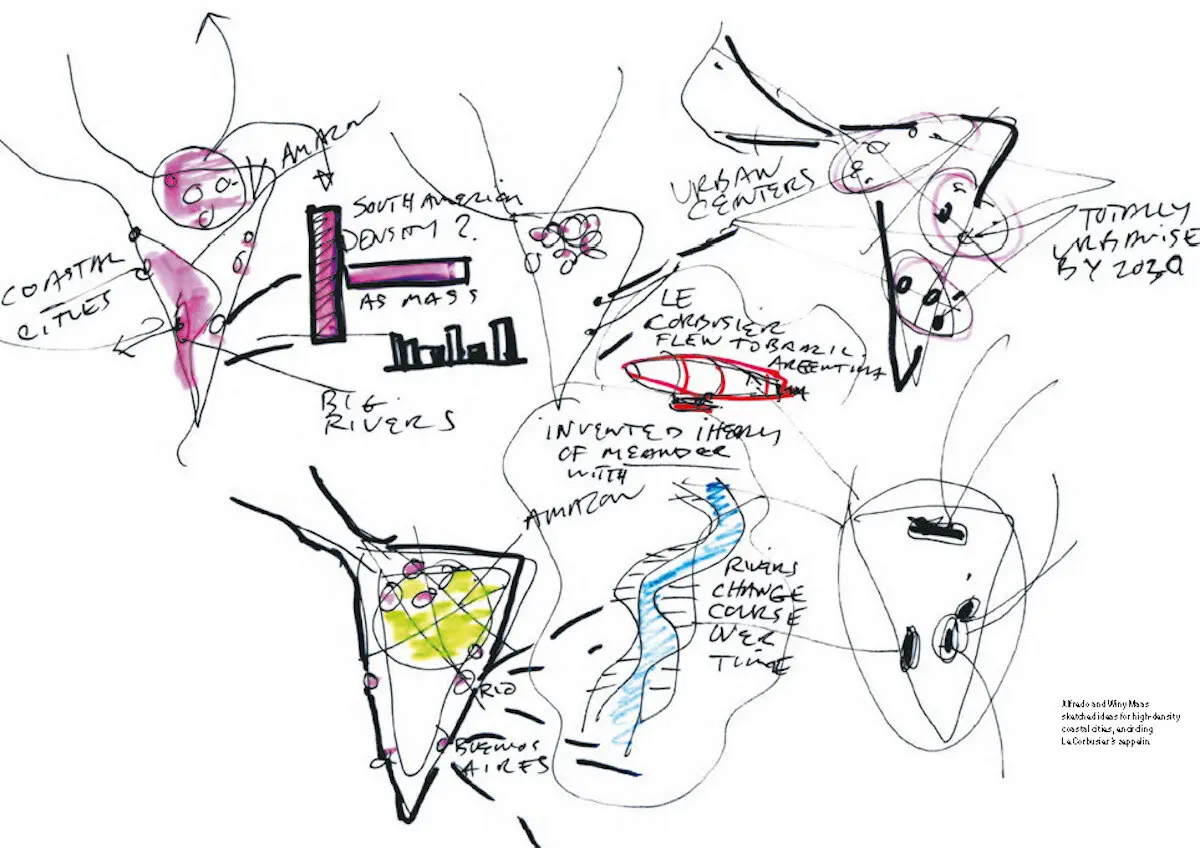 AMAZON
SOUTH AMERICA
DENSITY ?
AS MASS
COASTAL
CITIES
BIG
RIVERS
URBAN
CENTERS
TOTALLY
URBANISE
BY 2030
LE
CORBUSIER
FLEW TO BRAZIL.
ARGENTINA
INVENTED THEORY
OF MEANDER
WITH
AMAZON
RIVERS
CHANGE
COURSE
OVER
TIME
RIO
BUENOS
AIRES
Alfredo and Winy Maas
sketched ideas for high-density
coastal cities, including
Le Corbusier's zeppelin